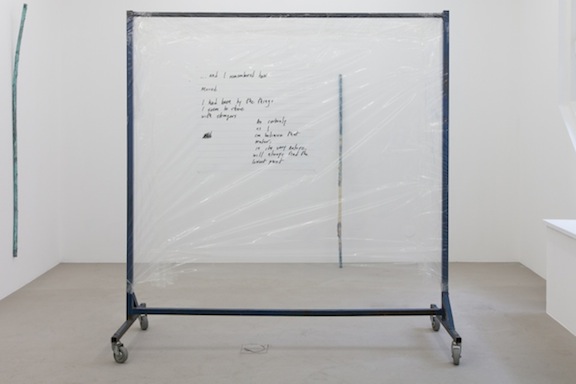 ... and I remembered how
moved
I had been by the things
I seem to share
with strangers
As certainly
as I
can believe that
matter,
in its very nature,
will always find the
lowest point